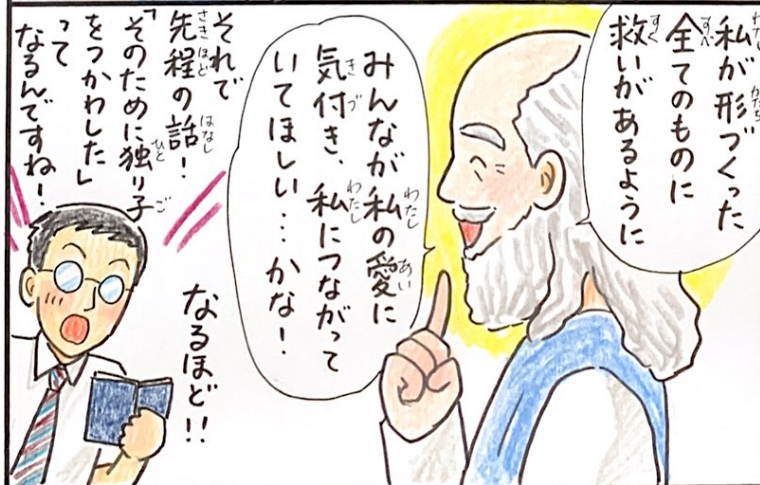 私が形づくった
全てのものに
救いがあるように
みんなが私の愛に
気付き、私につながって
いてほしい…かな！
それで
先程の話！
「そのために独り子
をつかわした」
って
なるんですね！
なるほど!!